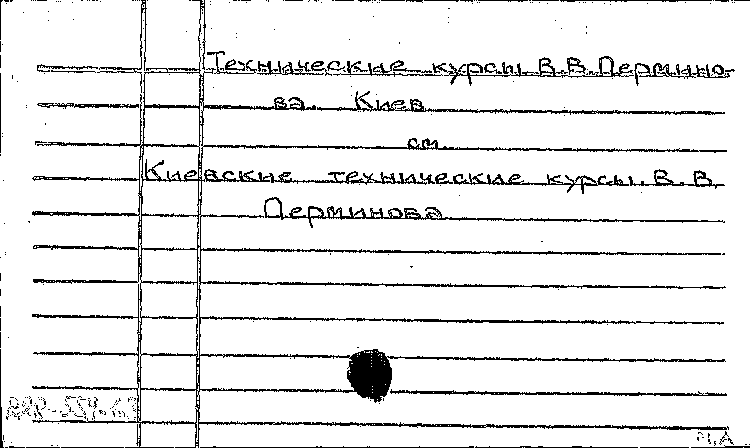 Технические курсы В.В.Пермино-
ва. Киев
см.
Киевские технические курсы В.В.
Перминова